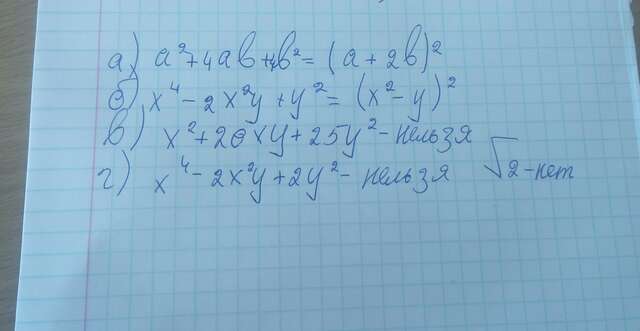 а) a² + 4ab + 4b² = (a + 2b)²
б) x⁴ - 2x²y + y² = (x² - y)²
в) x² + 20xy + 25y² - нельзя
г) x⁴ - 2x²y + 2y² - нельзя √2 - нет